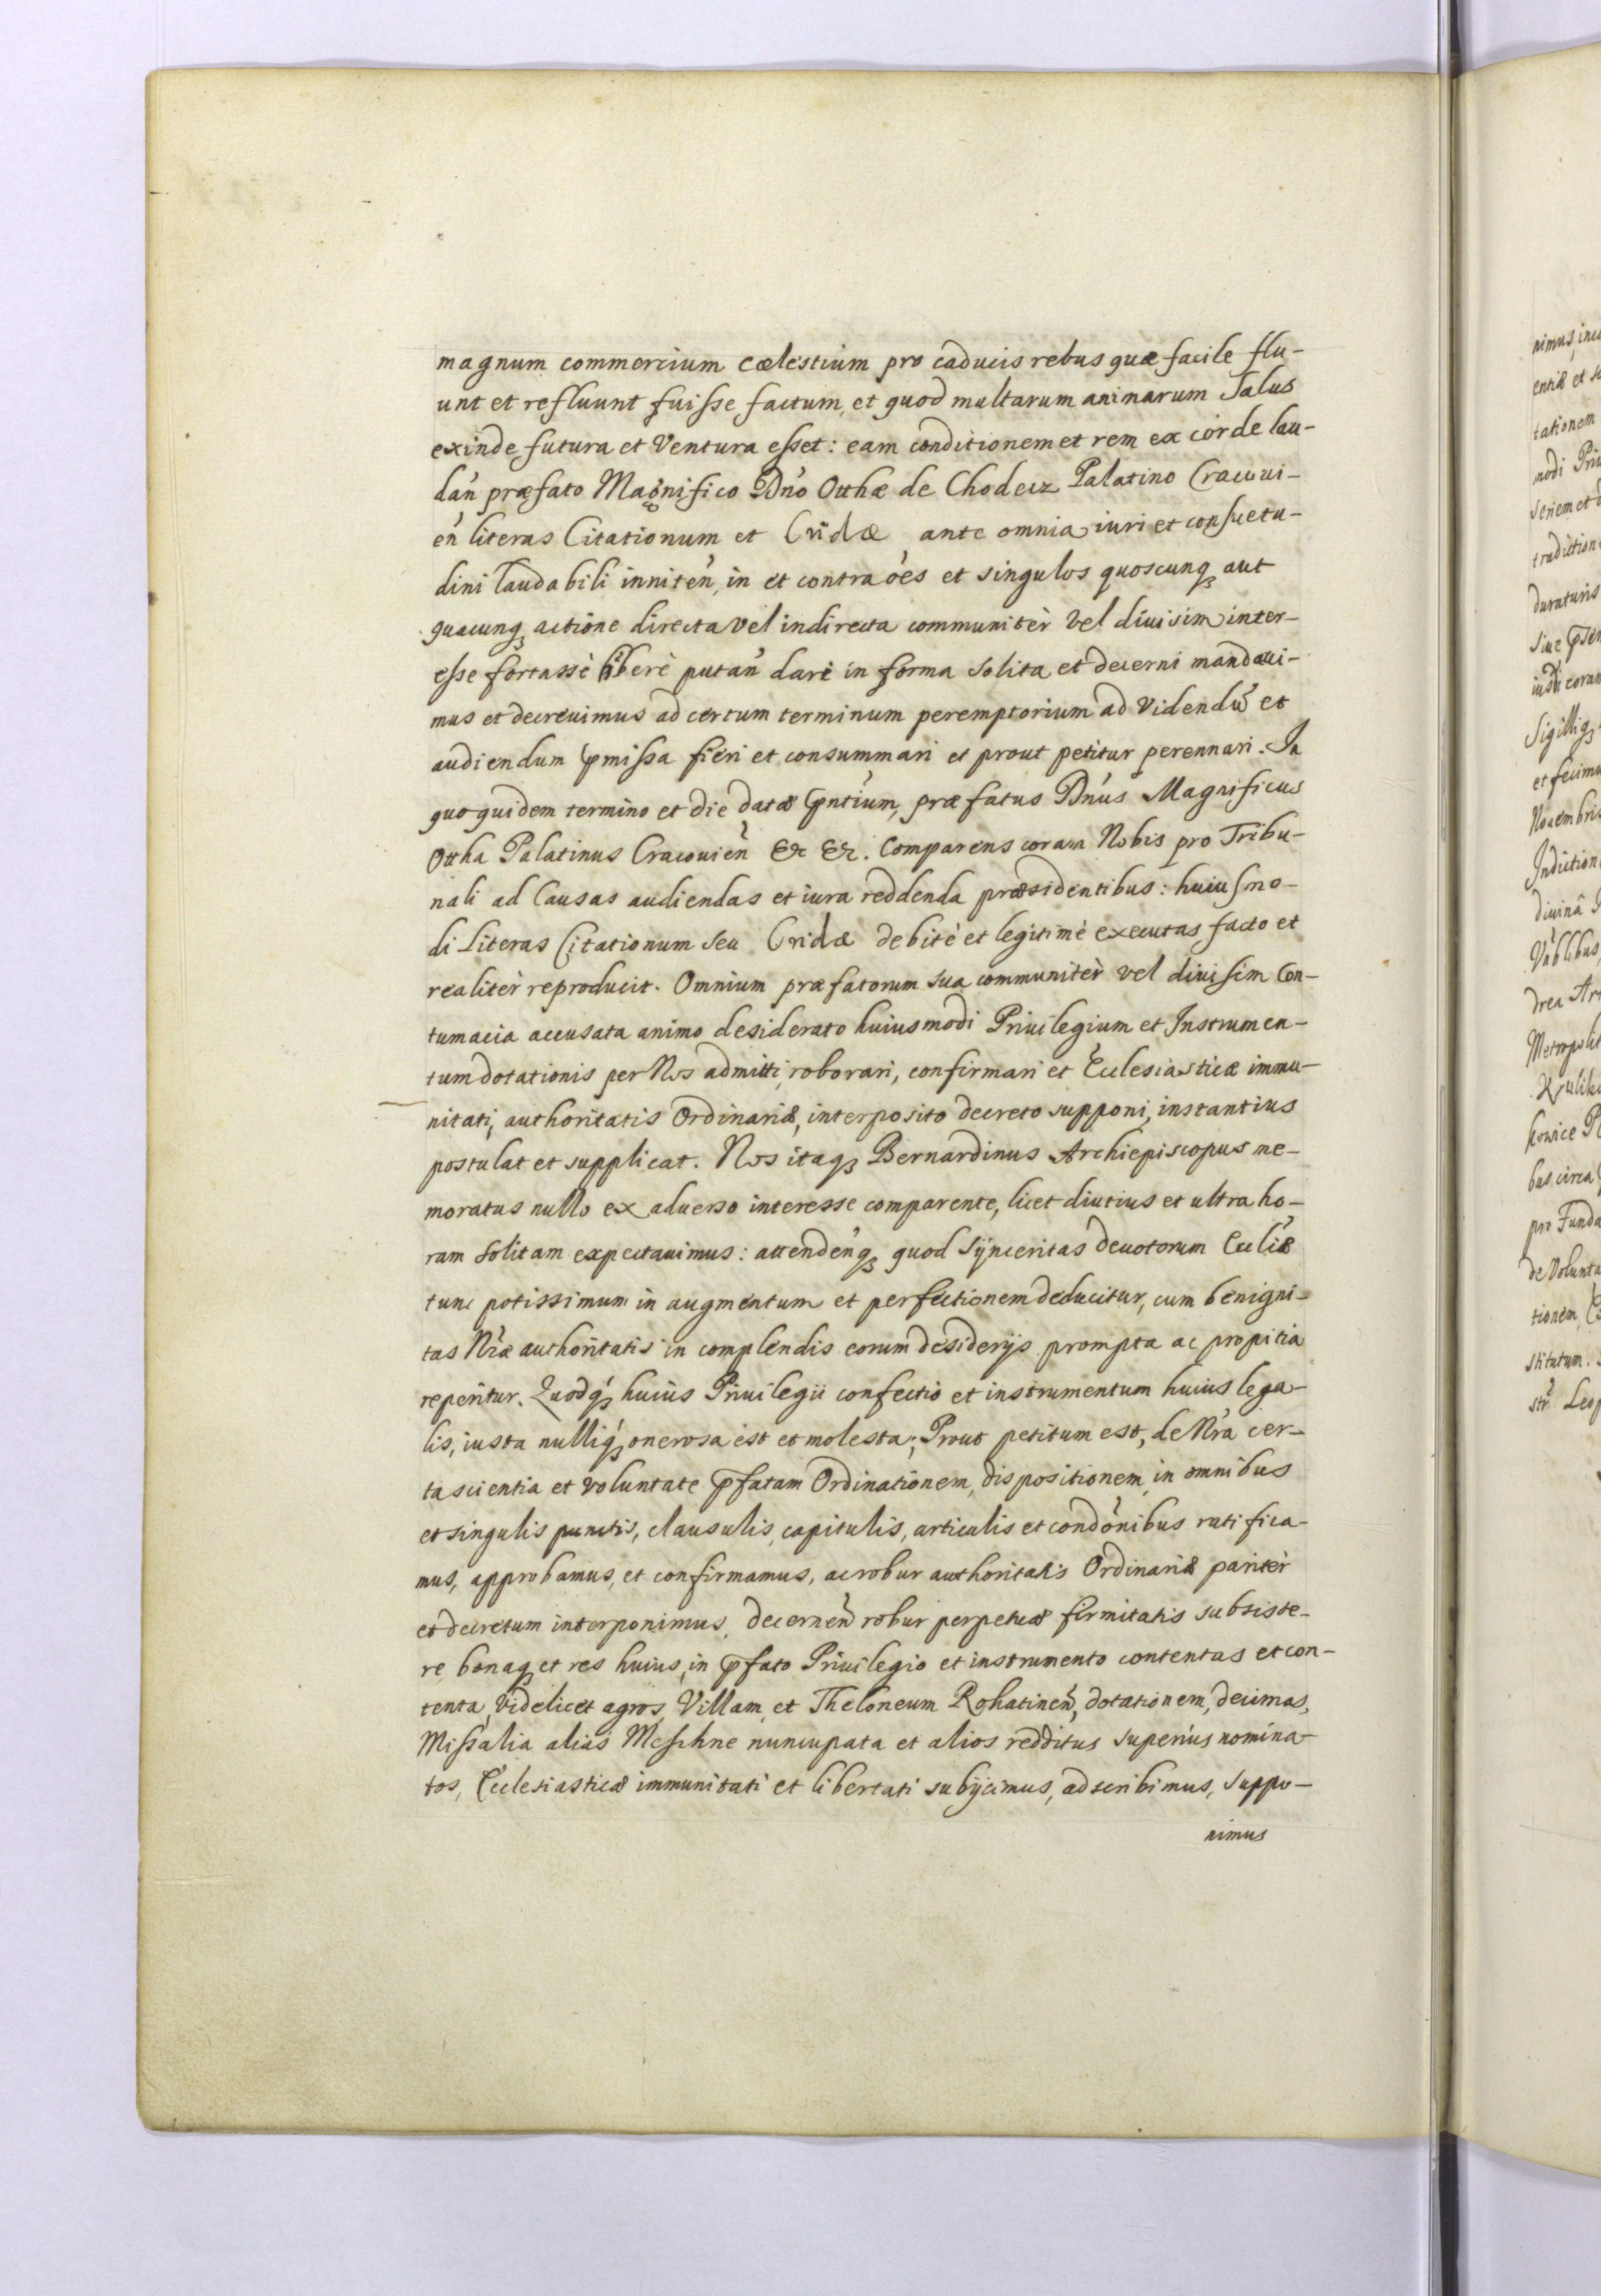 magnum commercium cælestium pro caducis rebus quæ facile flu-
unt et refluunt fuisse factum, et quod multarum animarum Salus
exinde futura et Ventura esset: eam conditionem et rem ex corde lau-
dan̄ præfato Magnifico Dn̄o Otthæ de Chodecz Palatino Cracoui-
en̄ literas Citationum et Cridæ ante omnia iuri et consuetu-
dini laudabili inniten̄, in et contra ōes et singulos quoscunqꝫ aut
quacunqꝫ actione directa vel indirecta communitèr vel diuisim inter-
esse fortassè liberè putan̄ dari in forma solita et decerni mandaui-
mus et decreuimus ad certum terminum peremptorium ad Videndū et
audiendum p̄missa fieri et consummari et prout petitur perennari. In
quo quidem termino et die datæ p̄ntium, præfatus Dn̄us Magnificus
Ottha Palatinus Cracouien̄ &c &c. Comparens coram Nobis pro Tribu-
nali ad Causas audiendas et iura reddenda præsidentibus: huiusmo-
di Literas Citationum seu Cridæ debitè et legitimè executas facto et
realitèr reproducit. Omnium præfatorum sua communitèr vel diuisim Con-
tumacia accusata animo desiderato huiusmodi Priuilegium et Instrumen-
tum dotationis per Nos admitti, roborari, confirmari et Ecclesiasticæ immu-
nitati, authoritatis Ordinariæ, interposito decreto supponi, instantius
postulat et supplicat. Nos itaqꝫ Bernardinus Archiepiscopus me-
moratus nullo ex aduerso interesse comparente, licet diutius et ultra ho-
ram solitam expectauimus: attenden̄qꝫ quod synceritas deuotorum Eccliæ
tunc potissimum in augmentum et perfectionem deducitur, cum benigni-
tas Nr̄æ authoritatis in complendis eorum desiderijs prompta ac propitia
reperitur. Quodqꝫ huius Priuilegii confectio et instrumentum huius lega-
lis, iusta nulliqꝫ onerosa est et molesta; Prout petitum est, de Nr̄a cer-
ta scientia et voluntate p̄fatam Ordinationem, dispositionem, in omnibus
et singulis punctis, clausulis, capitulis, articulis et condōnibus ratifica-
mus, approbamus, et confirmamus, ac robur authoritatis Ordinariæ paritèr
et decretum interponimus, decernen̄ robur perpetuæ firmitatis subsiste-
re bonaqꝫ et res huius, in p̄fato Priuilegio et instrumento contentas et con-
tenta, videlicet agros, Villam, et Theloneum Rohatinen̄, dotationem, decimas,
Missalia aliàs Meschne nuncupata et alios redditus superiùs nomina-
tos, Ecclesiasticæ immunitati et libertati subijcimus, adscribimus, suppo-
nimus